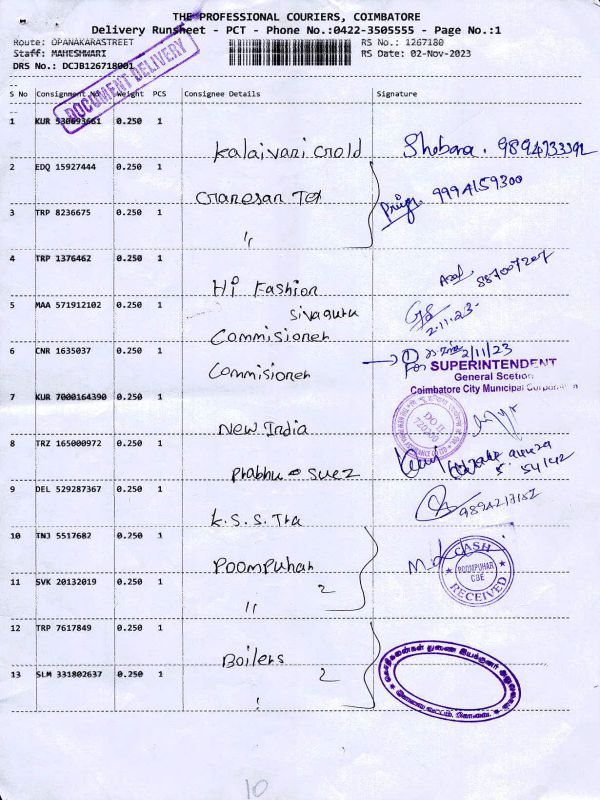 THE PROFESSIONAL COURIERS, COIMBATORE
Delivery Runsheet - PCT - Phone No.:0422-3505555 - Page No.:1
Route: OPANAKARASTREET RS No.: 1267180
Staff: MAHESHWARI RS Date: 02-Nov-2023
DRS No.: DCJB126718001
DOCUMENT DELIVERY
S No Consignment No Weight PCS Consignee Details Signature
1 KUR 530693661 0.250 1
Kalaivani Gold Shobana. 9894233392
2 EDQ 15927444 0.250 1
Ganesan Tex Priya 9994159300
3 TRP 8236675 0.250 1
"
4 TRP 1376462 0.250 1
Hi Fashion
5 MAA 571912102 0.250 1
Sivaguru 2.11.23
Commisioner
6 CNR 1635037 0.250 1
Commisioner 2/11/23
For SUPERINTENDENT
General Scetion
Coimbatore City Municipal Corporation
7 KUR 7000164390 0.250 1
New India
DO II
720200
8 TRZ 165000972 0.250 1
Prabhu Suez 54142
9 DEL 529287367 0.250 1
K.S.S. Tra 9894213152
10 TNJ 5517682 0.250 1
Poompuhar
CASH
POOMPUHAR
CBE
RECEIVED
11 SVK 20132019 0.250 1
" 2
12 TRP 7617849 0.250 1
Boilers
13 SLM 331802637 0.250 1
2
10